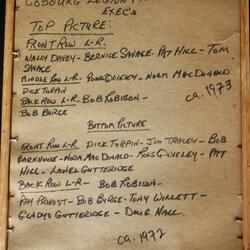 COBOURG LEGION
EXEC'S
TOP PICTURE:
FRONT ROW L-R.
WALLY DAVEY - BERNICE SAVAGE - PAT HILL - TOM
SAVAGE
MIDDLE ROW L-R. ROSS QUIGLEY - NORM MACDONALD
DICK TURPIN
BACK ROW L-R - BOB ROBISON -
BOB BURGE
ca. 1973
BOTTOM PICTURE
FRONT ROW L-R DICK TURPIN - JIM TRACEY - BOB
BARKHOUSE - NORM MACDONALD - ROSS QUIGLEY - PAT
HILL - LAUREL GUTTERIDGE
BACK ROW L-R - BOB ROBISON -
RAY PRUVOST - BOB BURGE - TONY WILLETT -
GLADYS GUTTERIDGE - DOUG HALL.
ca. 1972